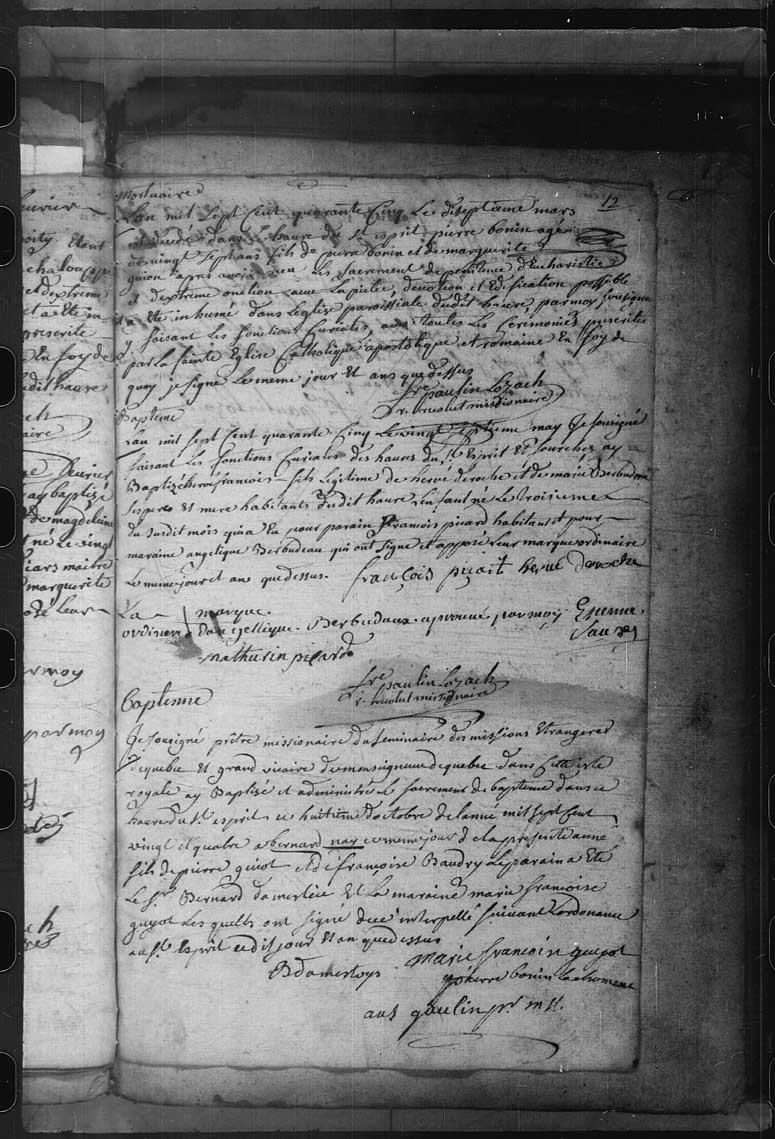 12
Mortuaire
Lan mil sept cent quarante cinq le diseptieme mars
est decedé dans le havre du st esprit pierre bonin agé
de vingt sept ans fils de pierre bonin et de marguerite
guion apres avoir les sacrement de penitence d'Eucharistie
et d'extreme onction avec la pieté, devotion et Edification possible
a Eté inhumé dans leglise paroissiale dudit havre, par moy sousigné
y faisant les fonctions Curiales, avec toutes les Ceremonies prescrites
par la sainte Eglise Catholique apostolique et romaine En foy de
quoy je signe le meme jour et ans que dessus
fre paulin Lozach
r. recolut missionaire
Bapteme
Lan mil sept cent quarante cinq le vingt septieme may je sousigné
faisant les fonctions Curiales des havres du st Esprit et fourchez ay
Baptizé herve francois fils legitime de hervé deroche et de marie Berbudeau
ses pere et mere habitants dudit havre l'enfant né le troisieme
du susdit mois qui a Eu pour parain francois picard habitant et pour
maraine angelique Berbudeau qui ont signé et apposé leur marque ordinaire
le meme jour et ans que dessus. françois picait hervé deroche
La marque
ordinere dangellique Berbudaux aprouvé par moy Etienne
mathurin picard
fre paulin Lozach
r. recolut missionaire
Baptenne
Je sousigné prêtre missionaire du seminaire des missions Etrangeres
de quebec Et grand vicaire de monseigneur de quebec dans cette isle
royale ay Baptisé et administré le sacrement de bapteme dans ce
havre du st esprit ce huitieme doctobre de lanné mil sept cent
vingt et quatre a bernard nay ce meme jour de la presente anné
fils de pierre guiot et de françoise Baudry le parain a Eté
le sr Bernard damestoie et la maraine marie françoise
guyot lesquels ont signé de ce interpellé suivant lordonance
au st Esprit cedit jour et an que dessus
Bdamestoys marie francoise guyot
pierre bonin lachomene
aus gaulin pr mis.
fevrier
Etant
chaloupe
et dextreme
prescrite
En foy de
dudit havre
fevrier
ay baptisé
de magdeleine
né le vingt
maitre
marguerite
par moy